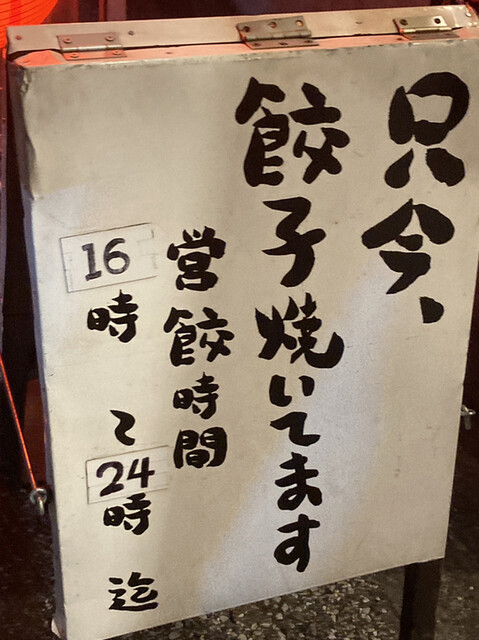 只今、
餃子焼いてます
営餃時間
16時〜24時迄